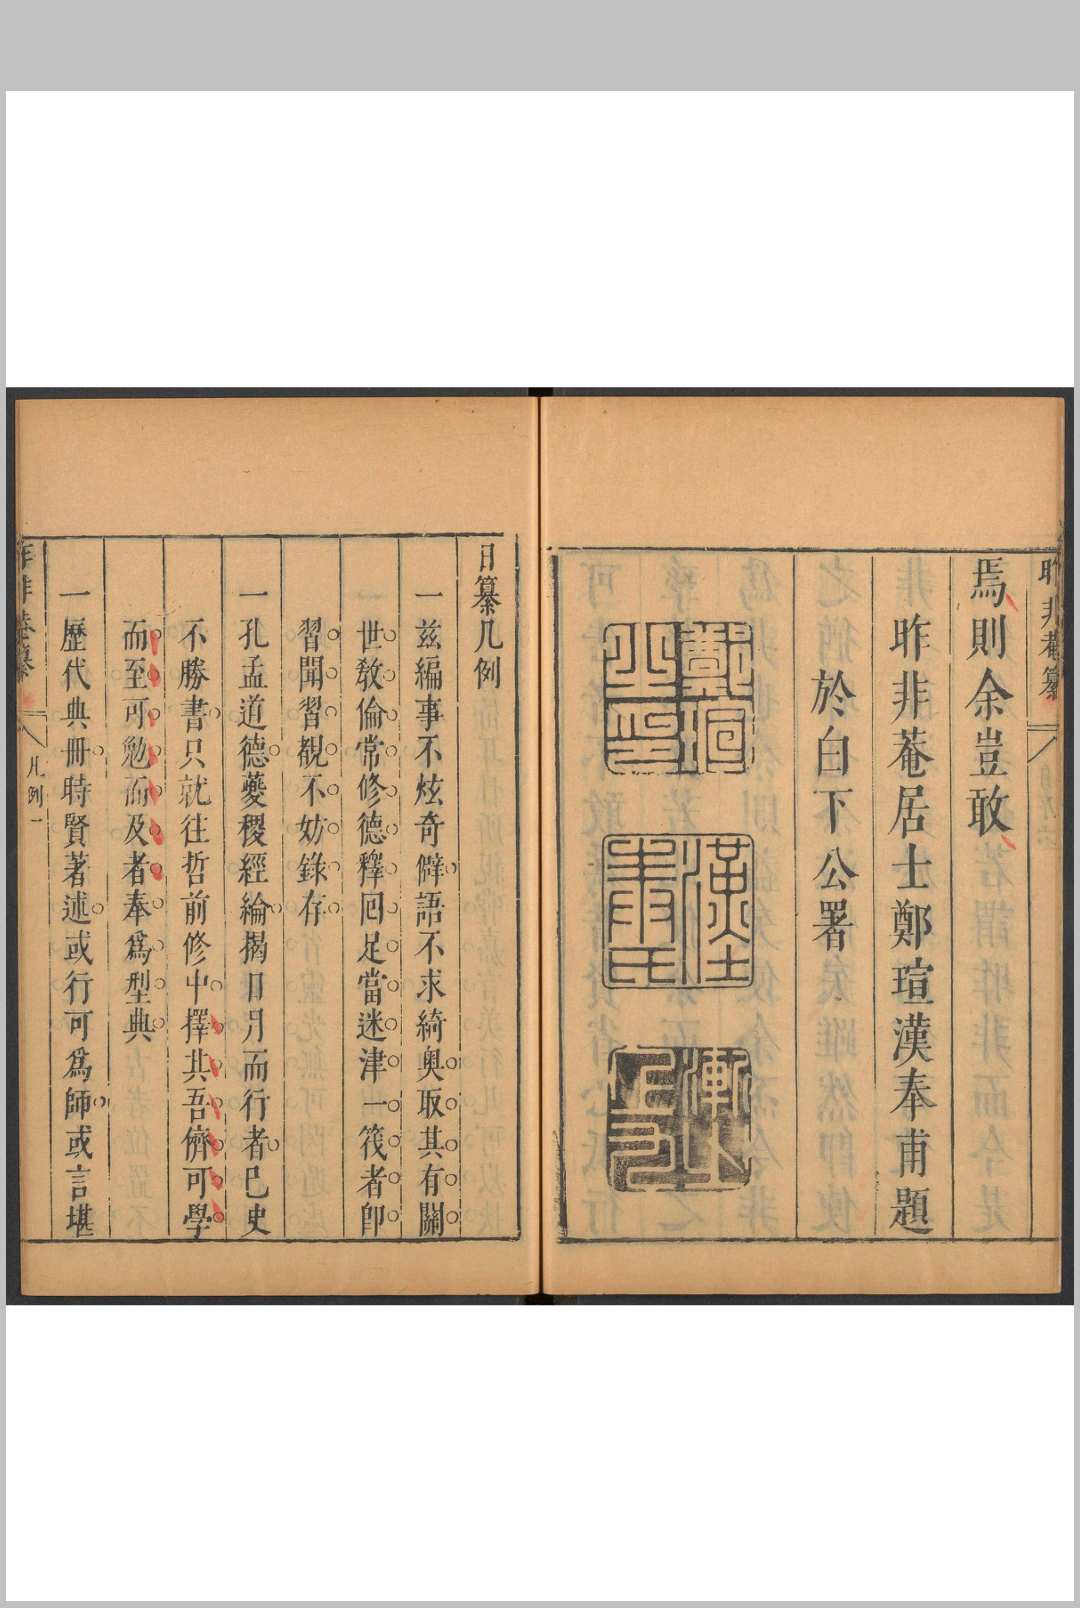 昨非菴纂
焉則余豈敢
昨非菴居士鄭瑄漢奉甫題
於白下公署
鄭瑄之印
漢奉氏
日纂凡例
一茲編事不炫奇僻語不求綺奧取其有關
世教倫常修德釋回足當迷津一筏者卽
習聞習覩不妨錄存
一孔孟道德夔稷經綸揭日月而行者已史
不勝書只就往哲前修中擇其吾儕可學
而至可勉而及者奉爲型典
一歷代典冊時賢著述或行可爲師或言堪
凡例一